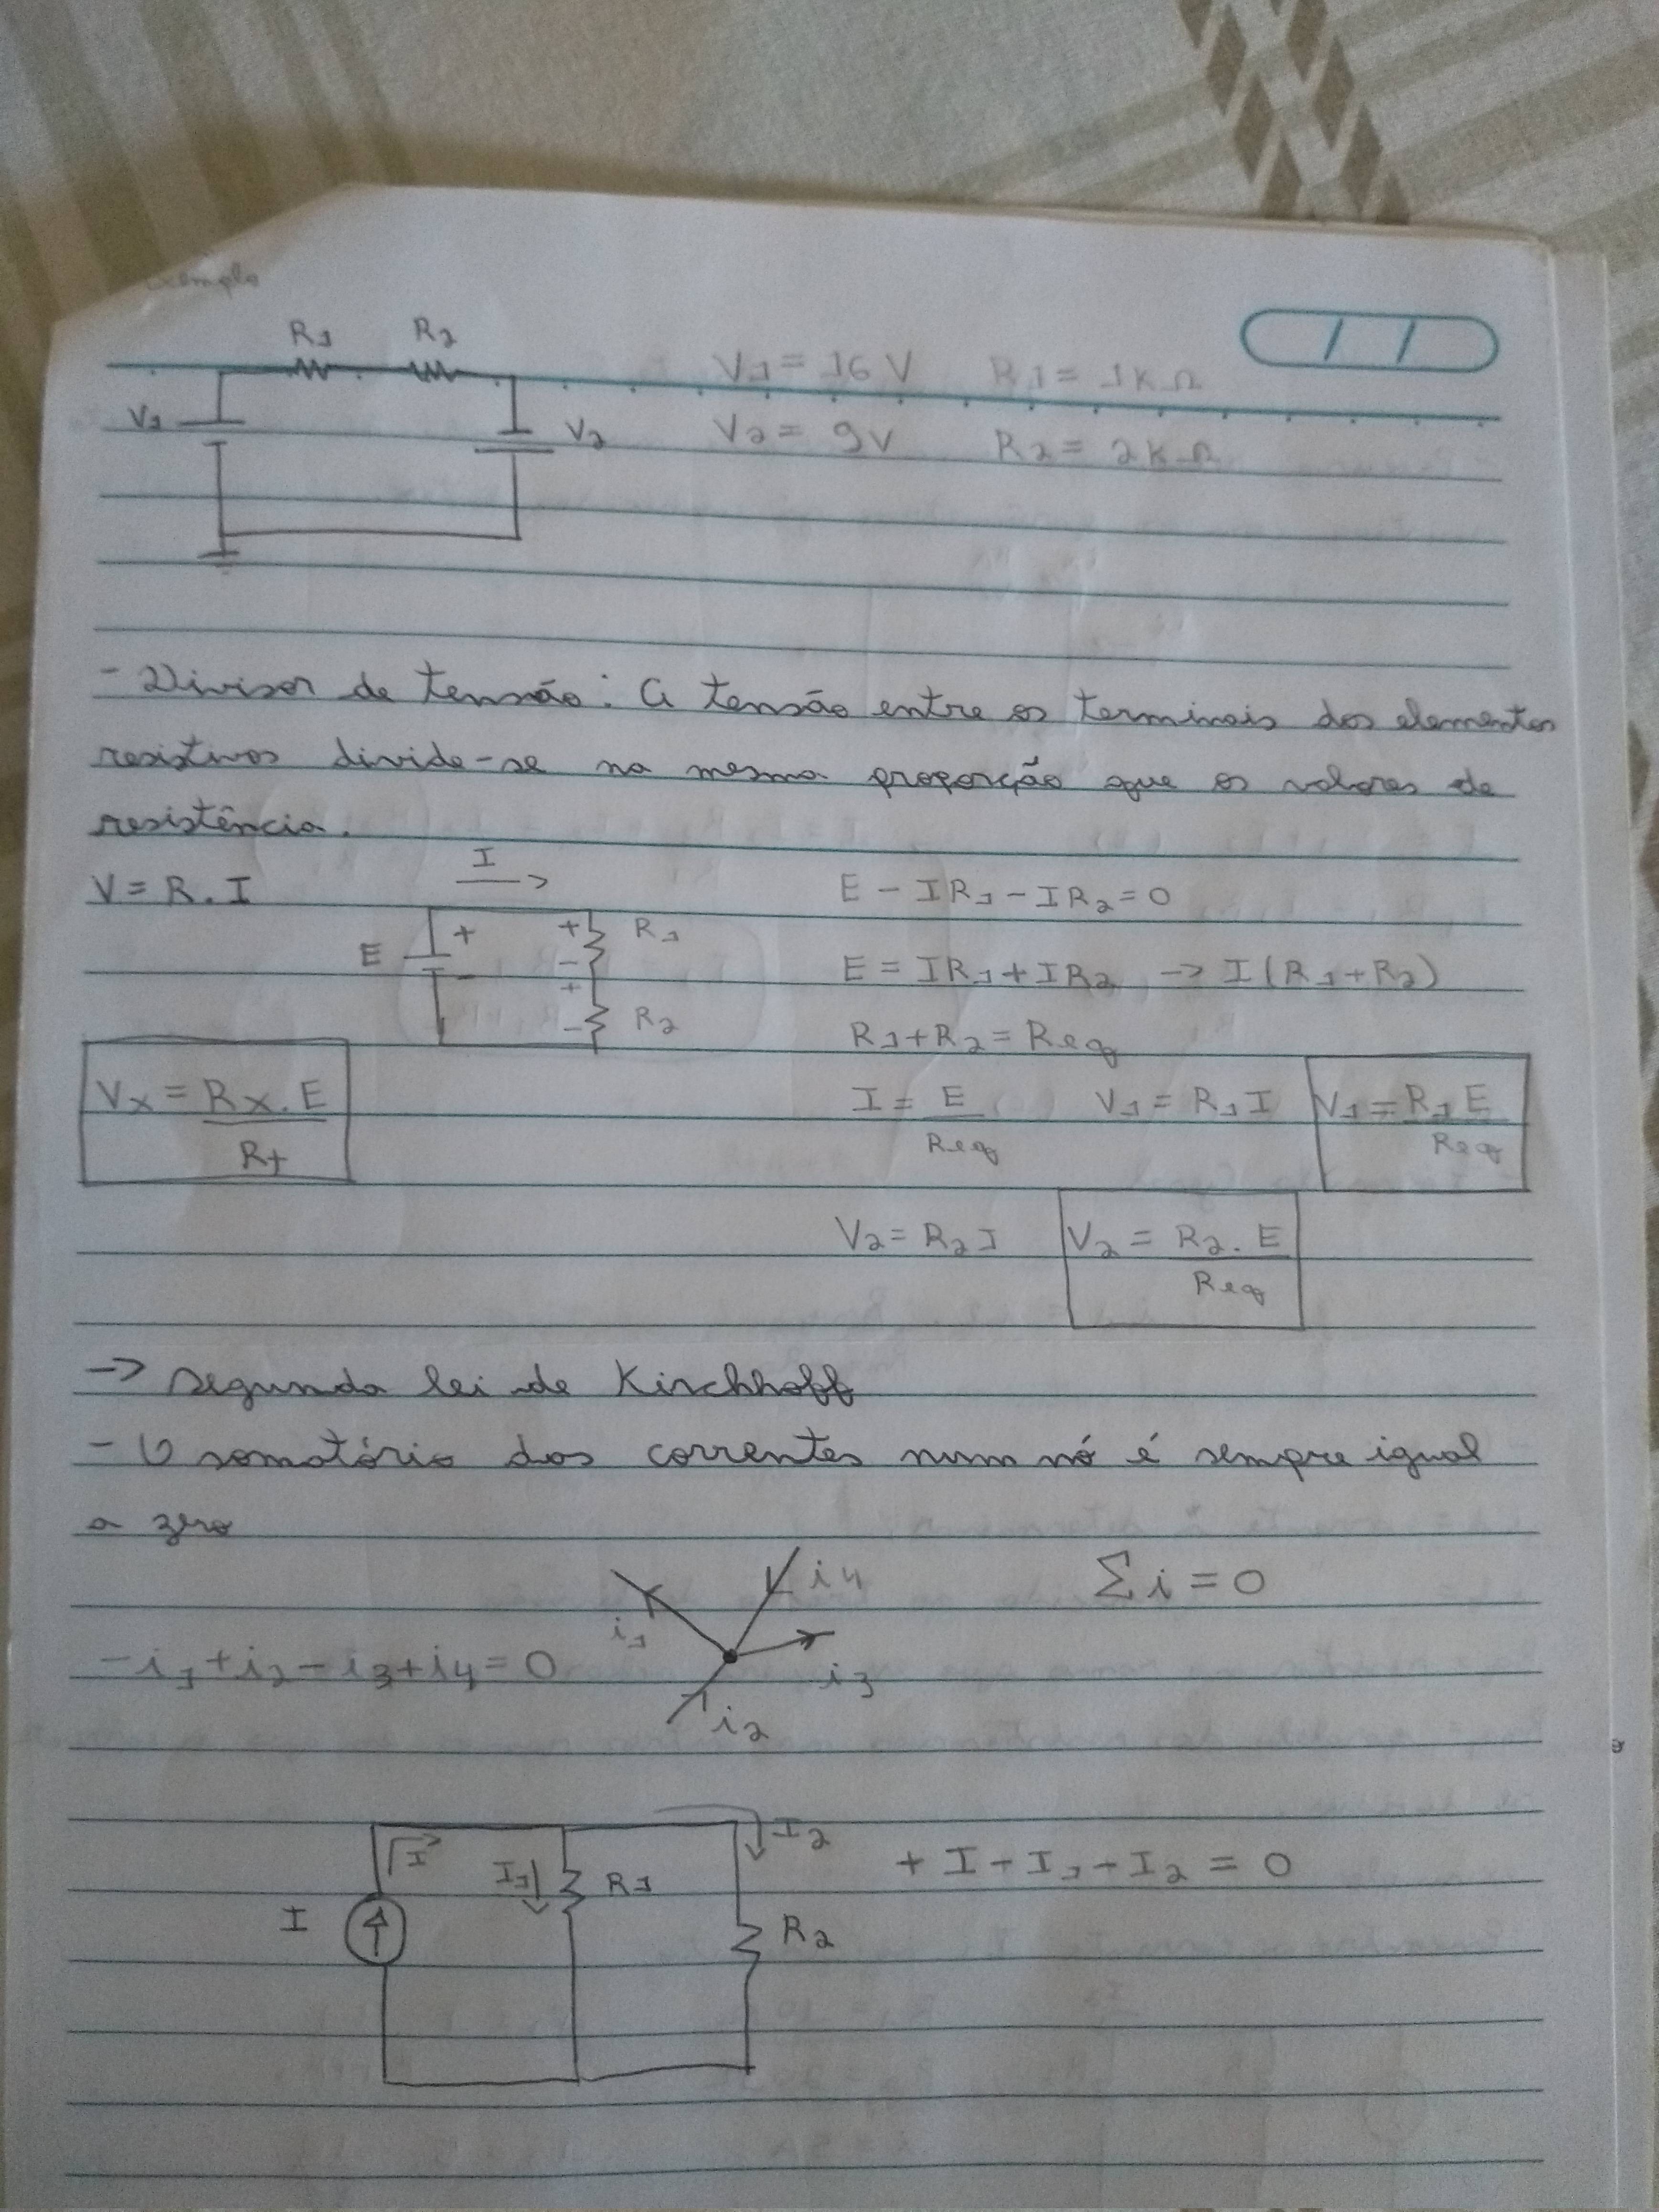 exemplo
R1 R2
V1 = 16 V R1 = 1K Ω
V1 V2
V2 = 9V R2 = 2K Ω
- Divisor de tensão: A tensão entre os terminais dos elementos
resistivos divide-se na mesma proporção que os valores de
resistência.
V = R . I
I
E - IR1 - IR2 = 0
E + - + - R1
E = IR1 + IR2 -> I(R1 + R2)
+ - R2
R1 + R2 = Req
Vx = Rx. E / Rt
I = E / Req V1 = R1 I V1 = R1 E / Req
V2 = R2 I V2 = R2. E / Req
-> Segunda lei de Kirchhoff
- O somatório das correntes num nó é sempre igual
a zero
i4 Σ i = 0
i1
-i1 + i2 - i3 + i4 = 0
i3
i2
I I1 R1 I2
+ I - I1 - I2 = 0
I R2